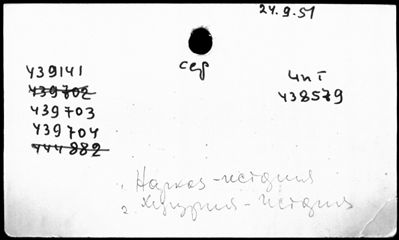 24.9.51
сер
439141
439702
439703
439704
444882
чит
438579
1. Наркоз - история
2. Хирургия - история